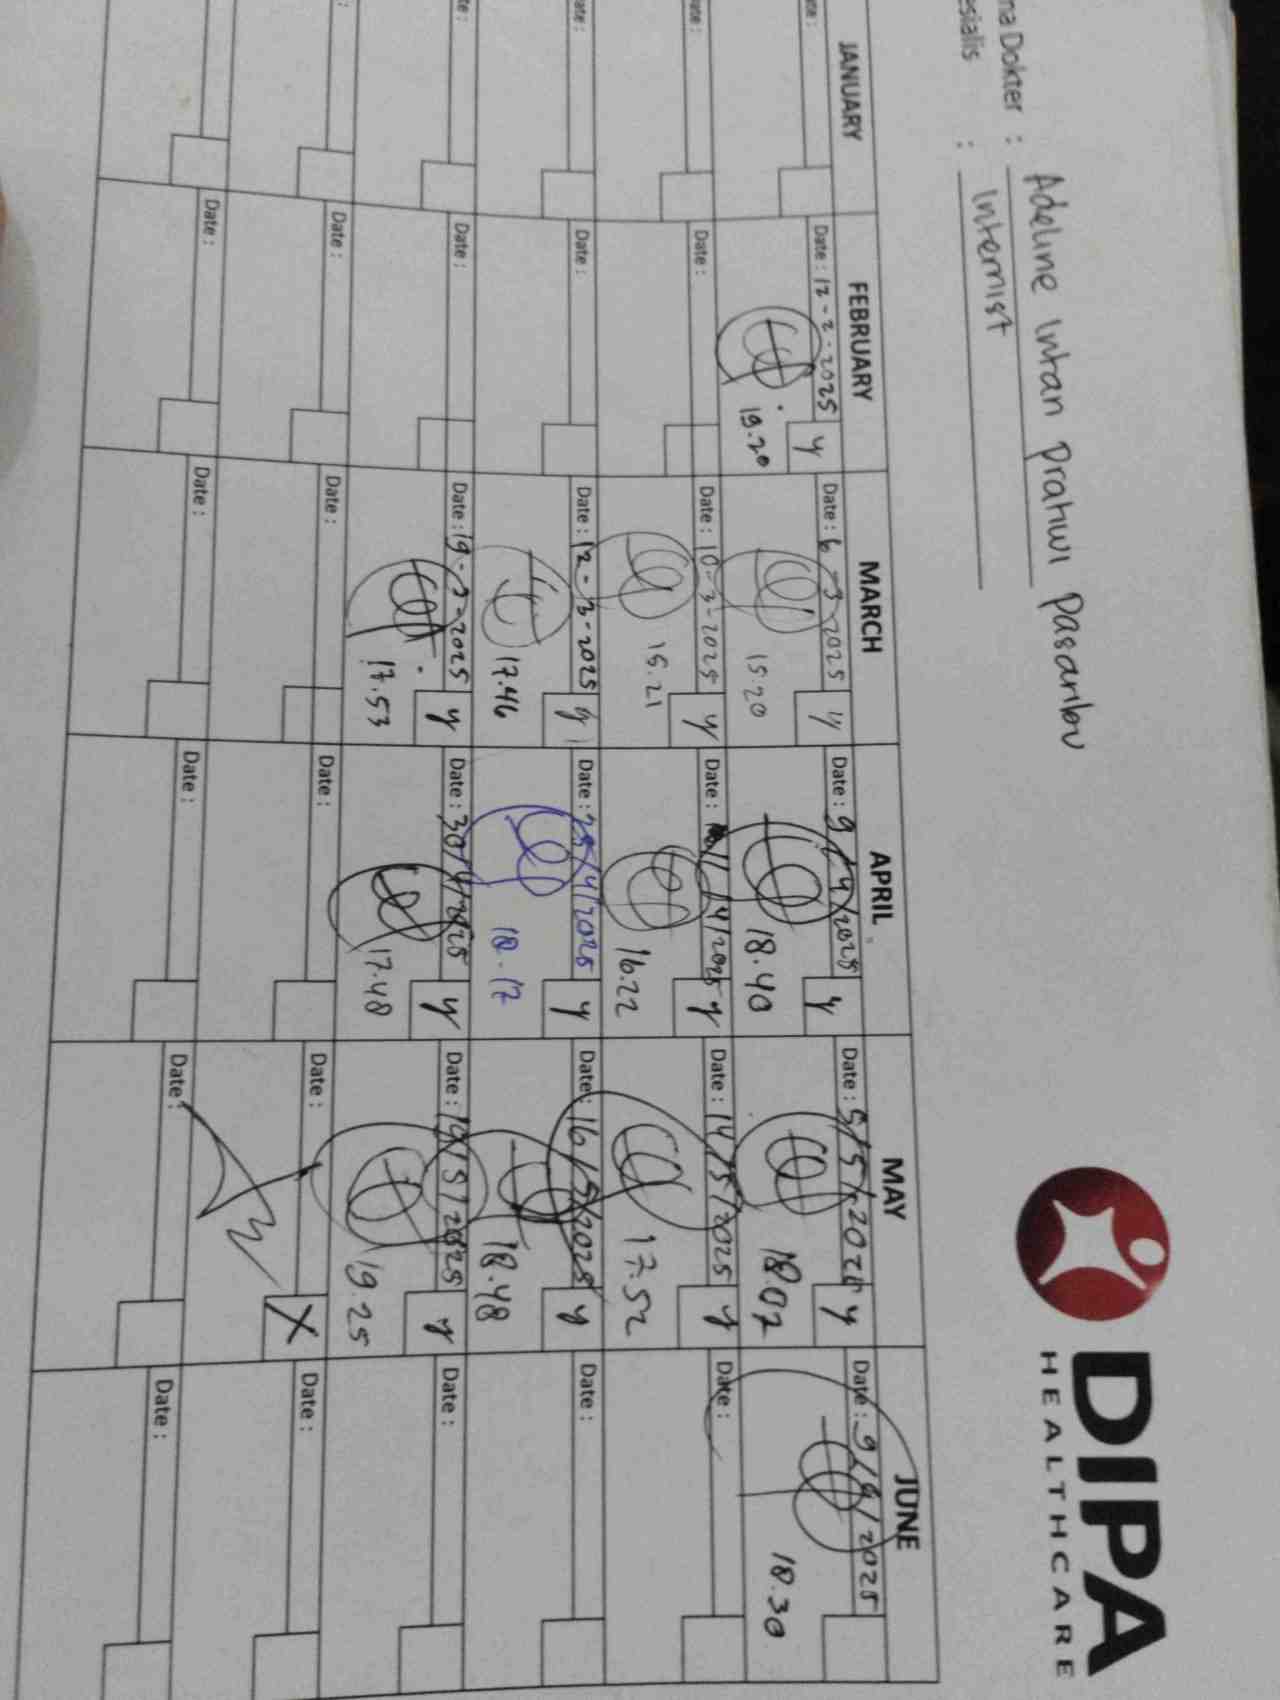 DIPA
HEALTHCARE
ma Dokter : Adeline Intan Pratiwi Pasaribu
esialis : Internist
JANUARY FEBRUARY MARCH APRIL MAY JUNE
ate : Date : 12-2-2025 Date : 6-3-2025 Date : 9/4/2025 Date : 5/5/2025 Date : 9/6/2025
19.20 y 15.20 y 18.40 y 18.02 y 18.30
ate : Date : Date : 10-3-2025 Date : 11/4/2025 Date : 14/5/2025 Date :
15.21 y 16.22 y 17.52 y
ate : Date : Date : 12-3-2025 Date : 25/4/2025 Date : 16/5/2025 Date :
17.46 y 18.17 y 18.48 y
te : Date : Date : 19-3-2025 Date : 30/4/2025 Date : 19/5/2025 Date :
17.53 y 17.48 y 19.25 y
: Date : Date : Date : Date : Date :
X
Date : Date : Date : Date : Date :